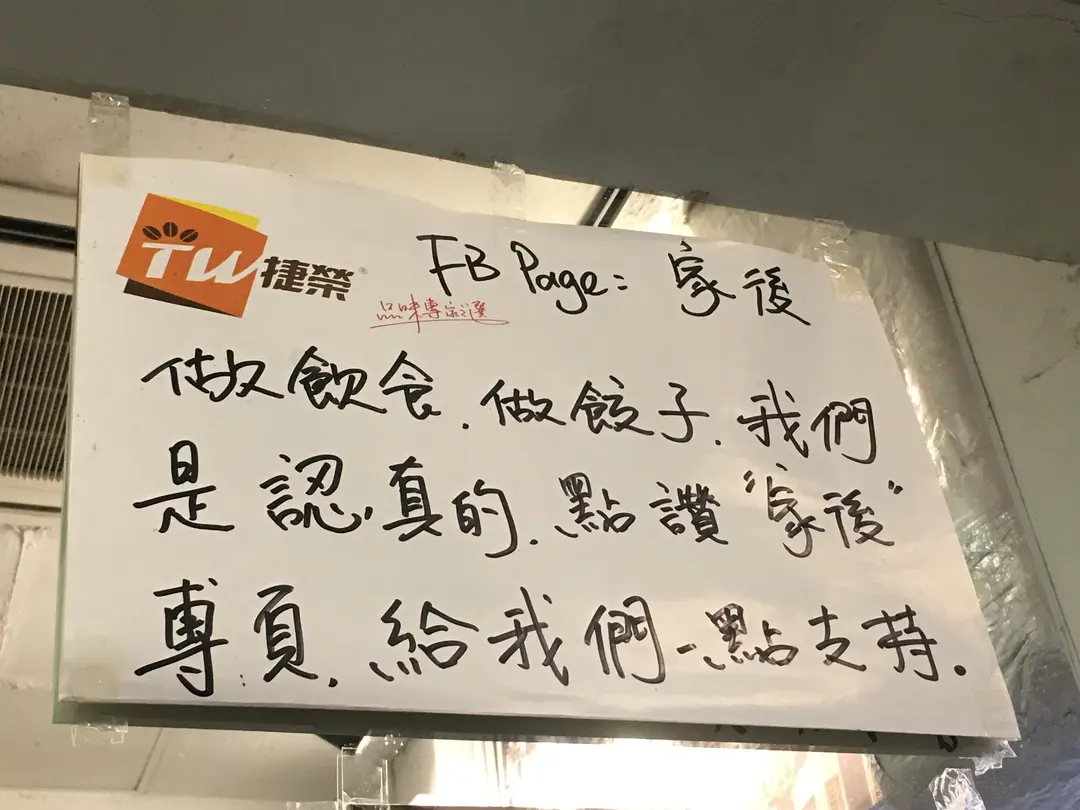 TW捷榮®
FB Page: 家後
品味專家之選
做飲食.做餃子.我們
是認真的.點讚"家後"
專頁.給我們一點支持.